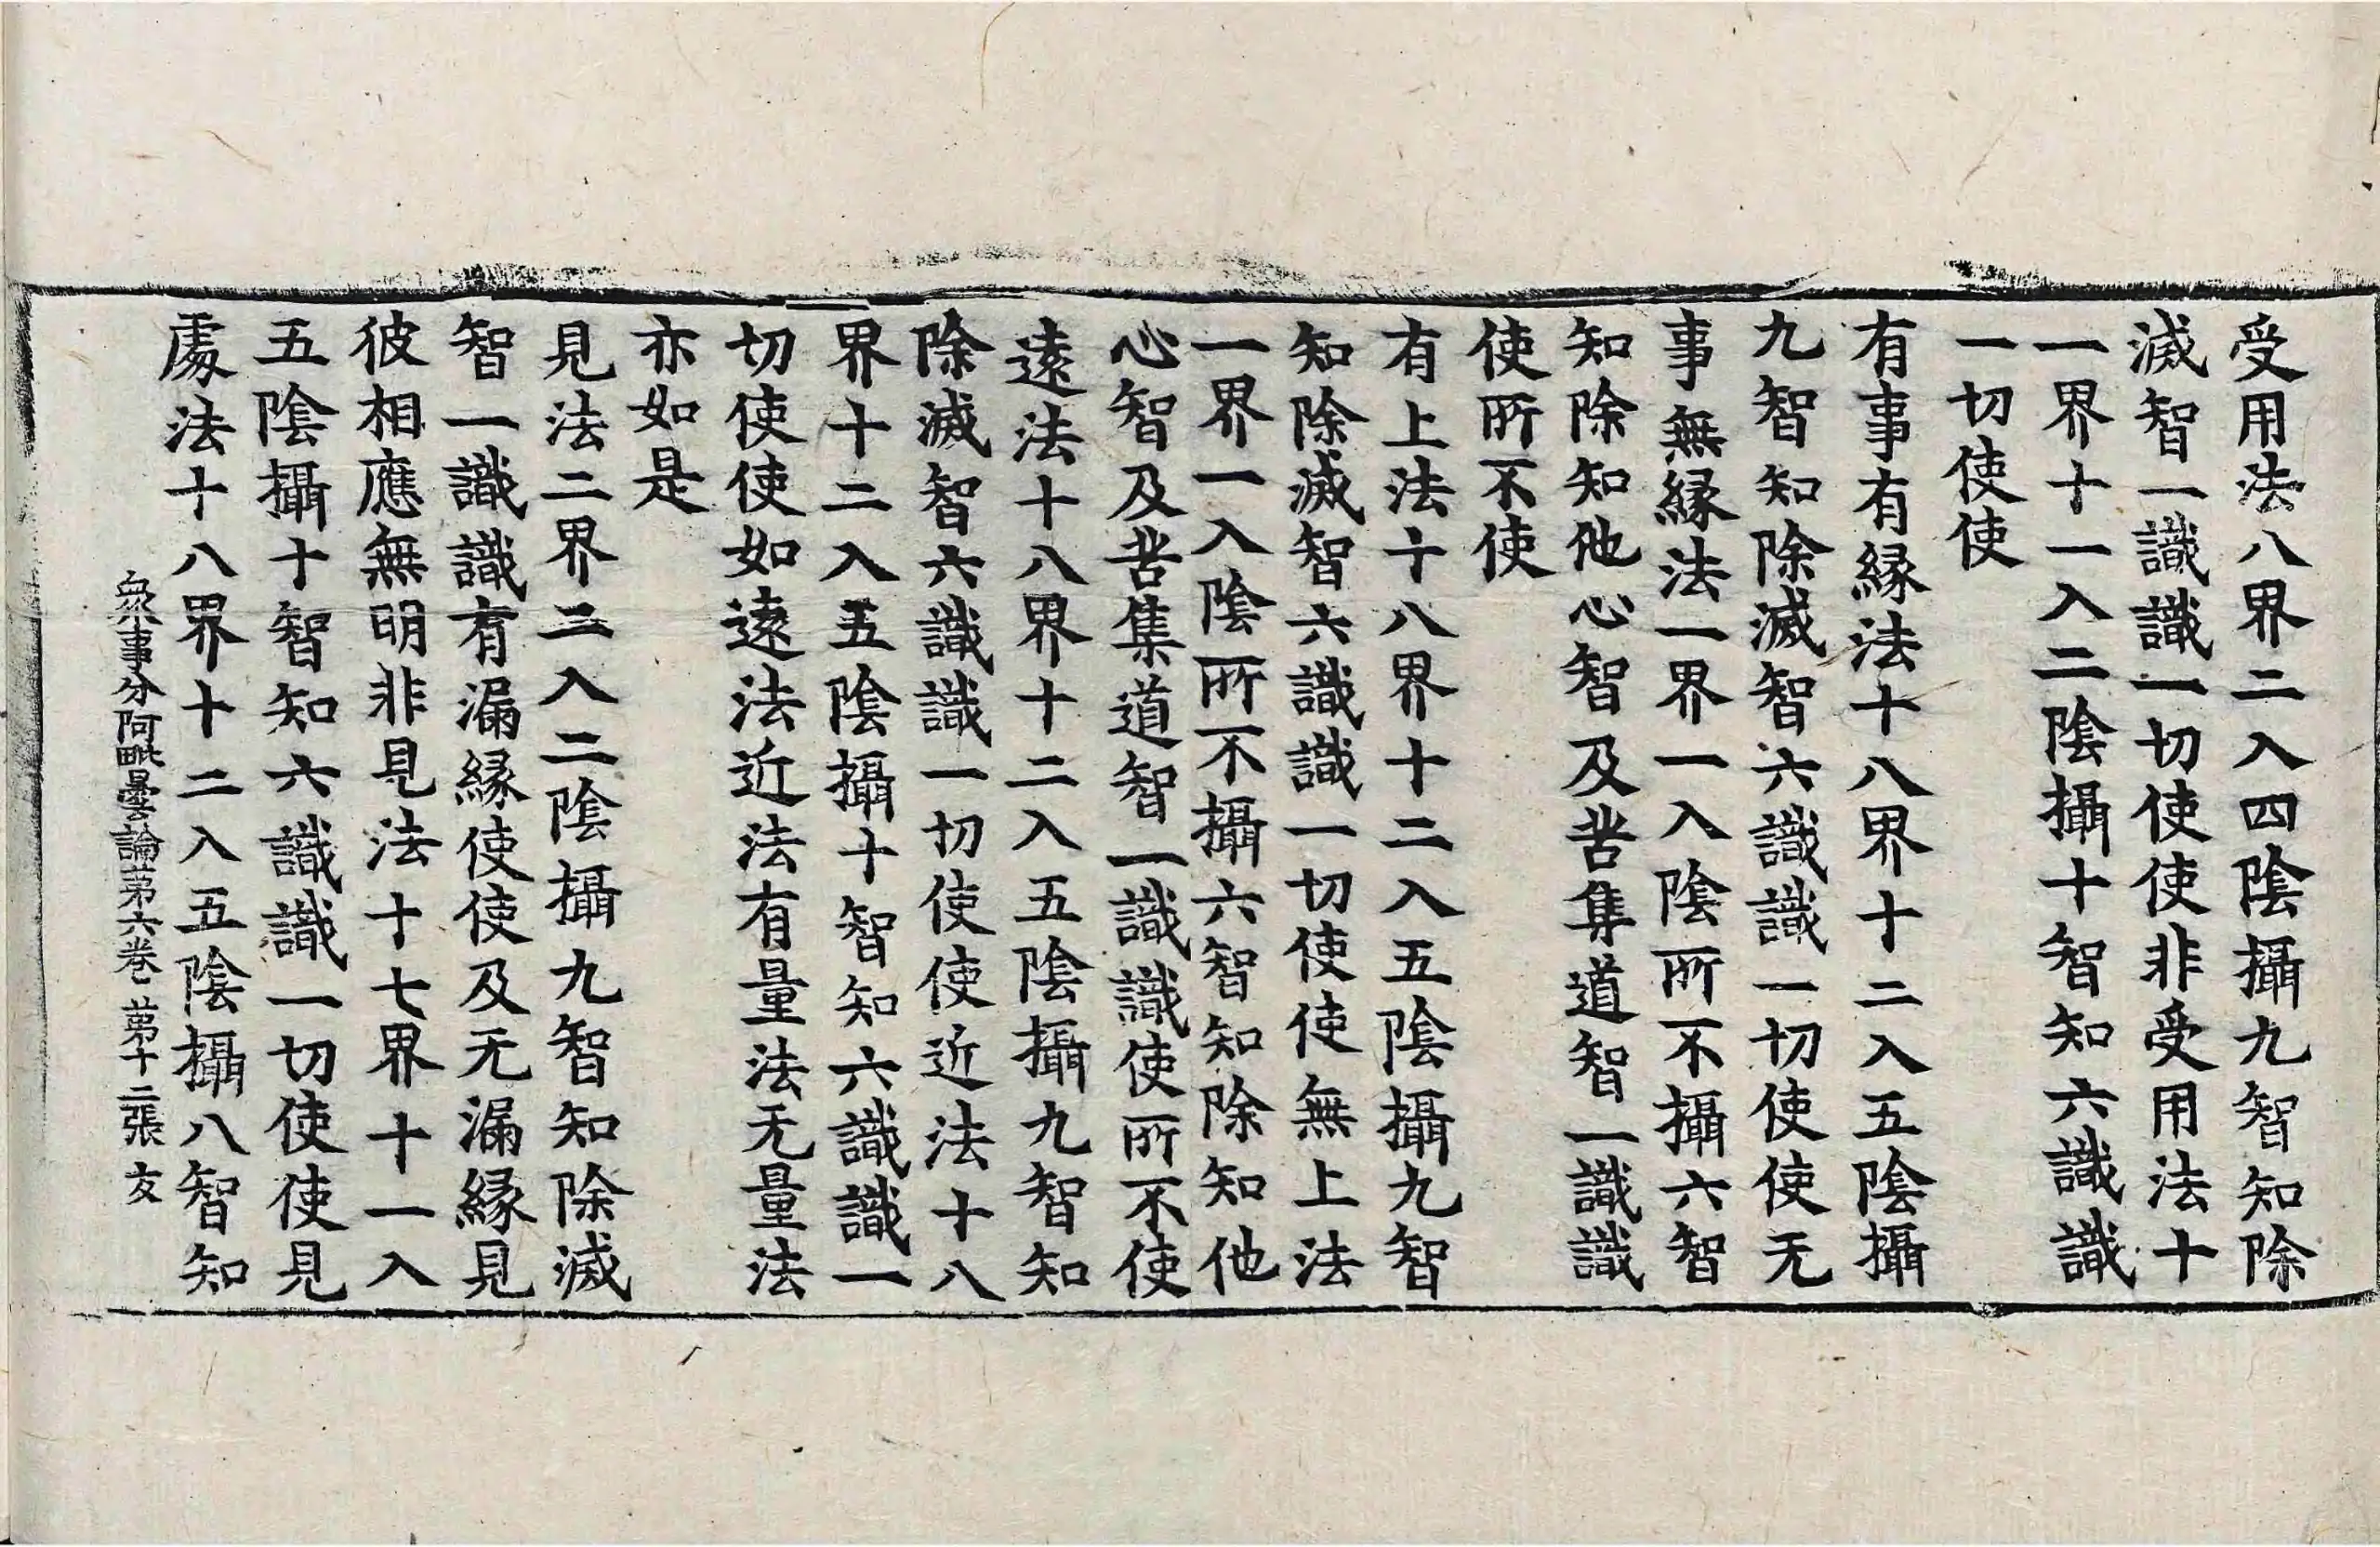 受用法八界二入四陰攝九智知除
滅智一識識一切使使非受用法十
一界十一入二陰攝十智知六識識
一切使使
有事有緣法十八界十二入五陰攝
九智知除滅智六識識一切使使无
事無緣法一界一入陰所不攝六智
知除知他心智及苦集道智一識識
使所不使
有上法十八界十二入五陰攝九智
知除滅智六識識一切使使無上法
一界一入陰所不攝六智知除知他
心智及苦集道智一識識使所不使
遠法十八界十二入五陰攝九智知
除滅智六識識一切使使近法十八
界十二入五陰攝十智知六識識一
切使使如遠法近法有量法无量法
亦如是
見法二界二入二陰攝九智知除滅
智一識識有漏緣使使及无漏緣見
彼相應無明非見法十七界十一入
五陰攝十智知六識識一切使使見
處法十八界十二入五陰攝八智知
衆事分阿毗曇論苐六卷 苐十二張 友